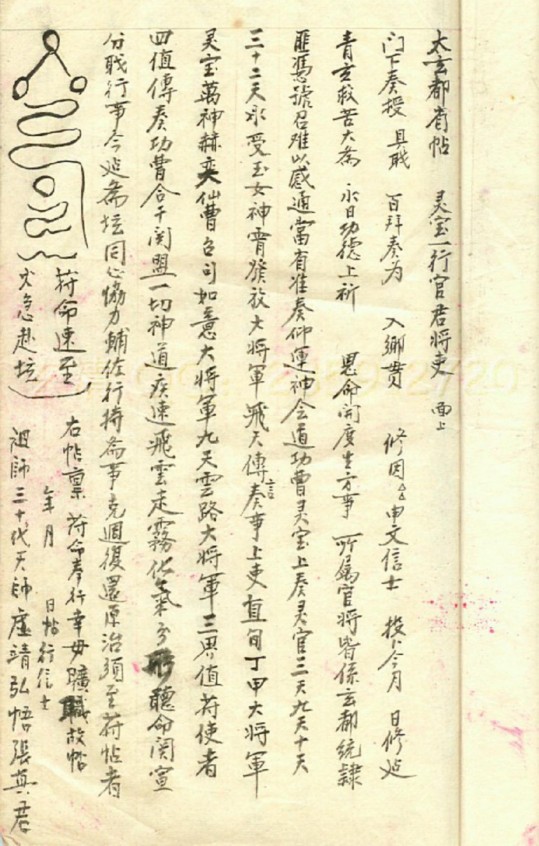 太玄都省帖 灵宝一行官君将吏 面上
门下奏授 具職 百拜奏为 入鄉貫 修因△△申文信士 投卜今月 日修㢟
青玄救苦大斋 永日功德上祈 恩命開度生方事 所属官将皆係玄都統隸
匪憑號召难以感通當有准奏仰運神会道功曹灵宝上奏灵官三天九天十天
三十二天永受玉女神霄發放大將軍飛天傳言奏事上吏直旬丁甲大将軍
灵宝萬神赫奕仙曹合司如意大將軍九天雲路大將軍三界值符使者
四值傳奏功曹合干関盟一切神道疾速飛雲走霧化氣分形聽命関宣
分職行事今㢟斋坛同心協力輔佐行持斋事克週復還原治須至符帖者
符命速至
火急赴坛
右帖禀 符命奉行幸毋曠職故帖
年 月 日帖行信士
祖師三十代天師虛靖弘悟張真君